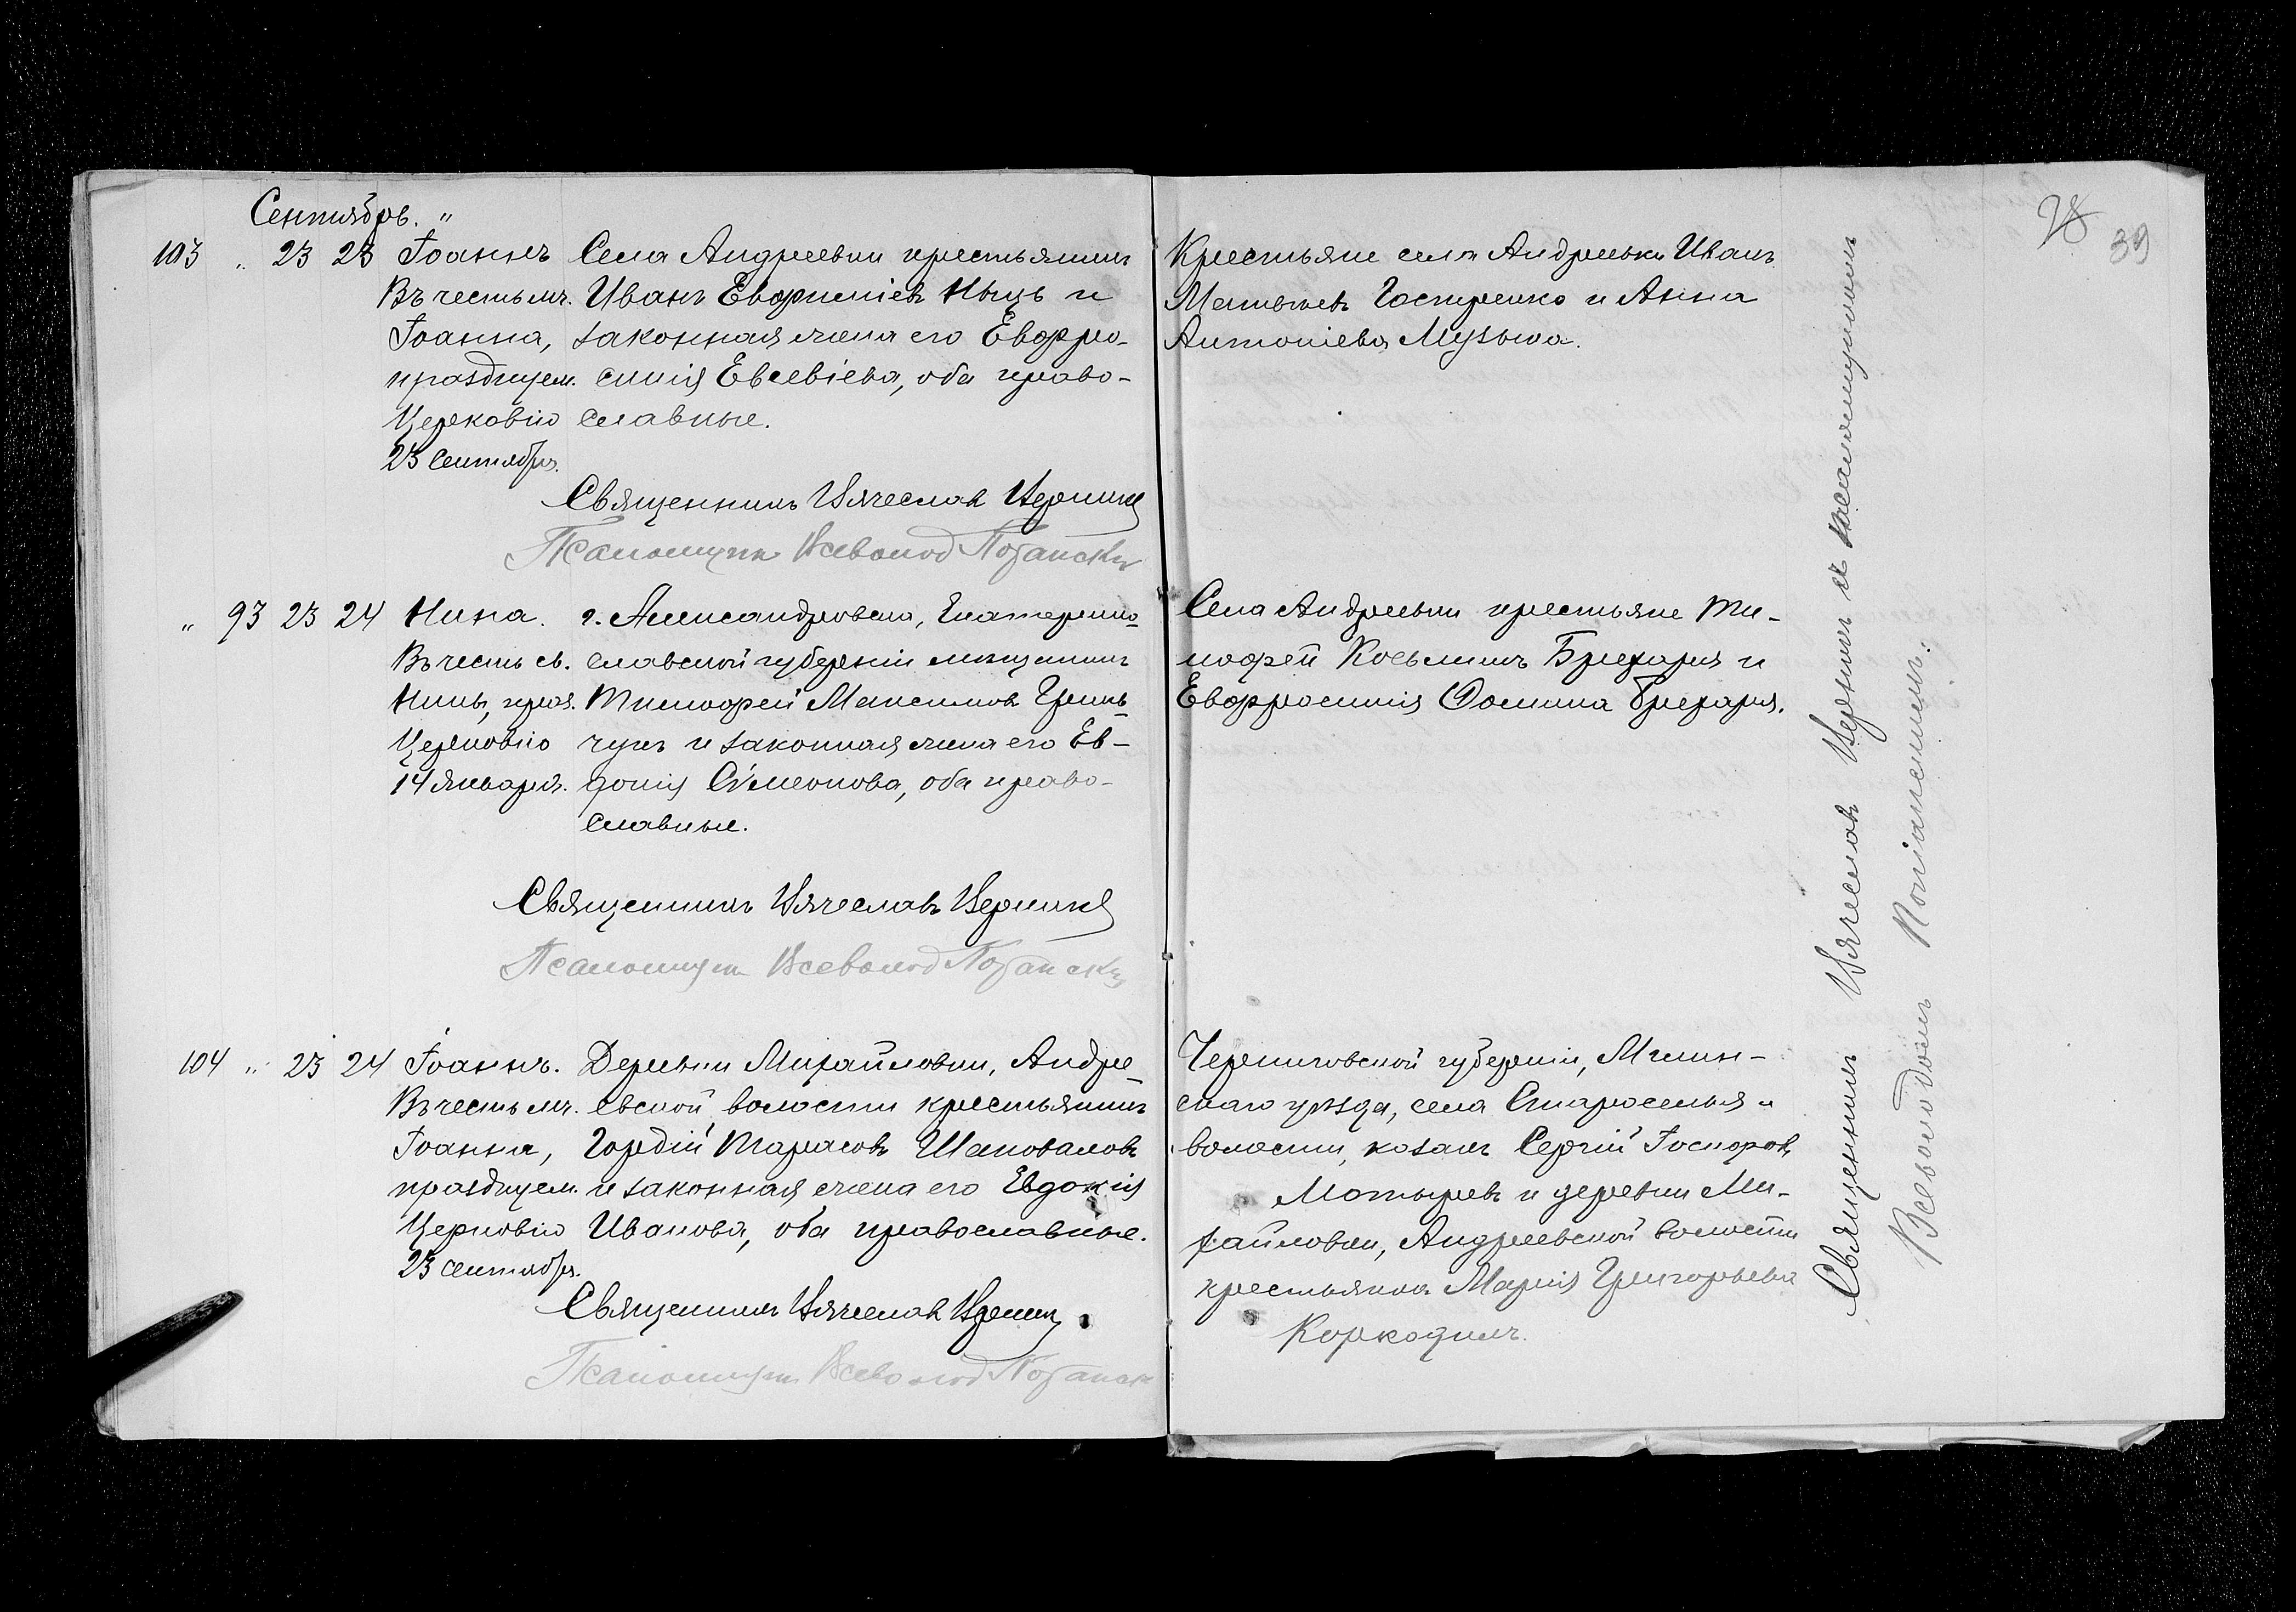 Сентябрь. "
28
39
103 " 23 23 Іоаннъ Села Андреевки крестьянинъ
Въ честь мч. Иванъ Евфиміевъ Ныць и
Іоанна, законная жена его Евфро-
празднуем. синія Евсевіева, оба право-
Церковію славные.
23 Сентября.
Священникъ Вячеслав
Псаломщикъ Всеволод
Крестьяне села Андреевки Иванъ
Матвѣевъ Гостренко и Анна
Антоніева Музыка.
" 93 23 24 Нина. г. Александровска, Екатерино-
Въ честь св. славской губерніи мѣщанинъ
Нины, праз. Тимофей Максимовъ Гринь-
Церковію чукъ и законная жена его Ев-
14 Января. докія Сѵмеонова, оба право-
славные.
Священникъ Вячеславъ
Псаломщикъ Всеволод
Села Андреевки крестьяне Ти-
мофей Косьминъ Брехаря и
Евфросинія Фомина Брехаря.
104 " 23 24 Іоаннъ. Деревни Михайловки, Андре-
Въ честь мч. евской волости крестьянинъ
Іоанна, Гордій Тарасовъ Шаповаловъ
празднуем. и законная жена его Евдокія
Церковію Иванова, оба православные.
23 сентября.
Священникъ Вячеслав
Псаломщикъ Всеволод
Черниговской губерніи, Мглин-
скаго уѣзда, села Староселья
волости, козакъ Сергій
Мотыревъ и деревни Ми-
хайловки, Андреевской волости
крестьянка Марія Григорьева
Коркодилъ.
Священникъ Вячеславъ и псаломщикомъ
Всеволодомъ